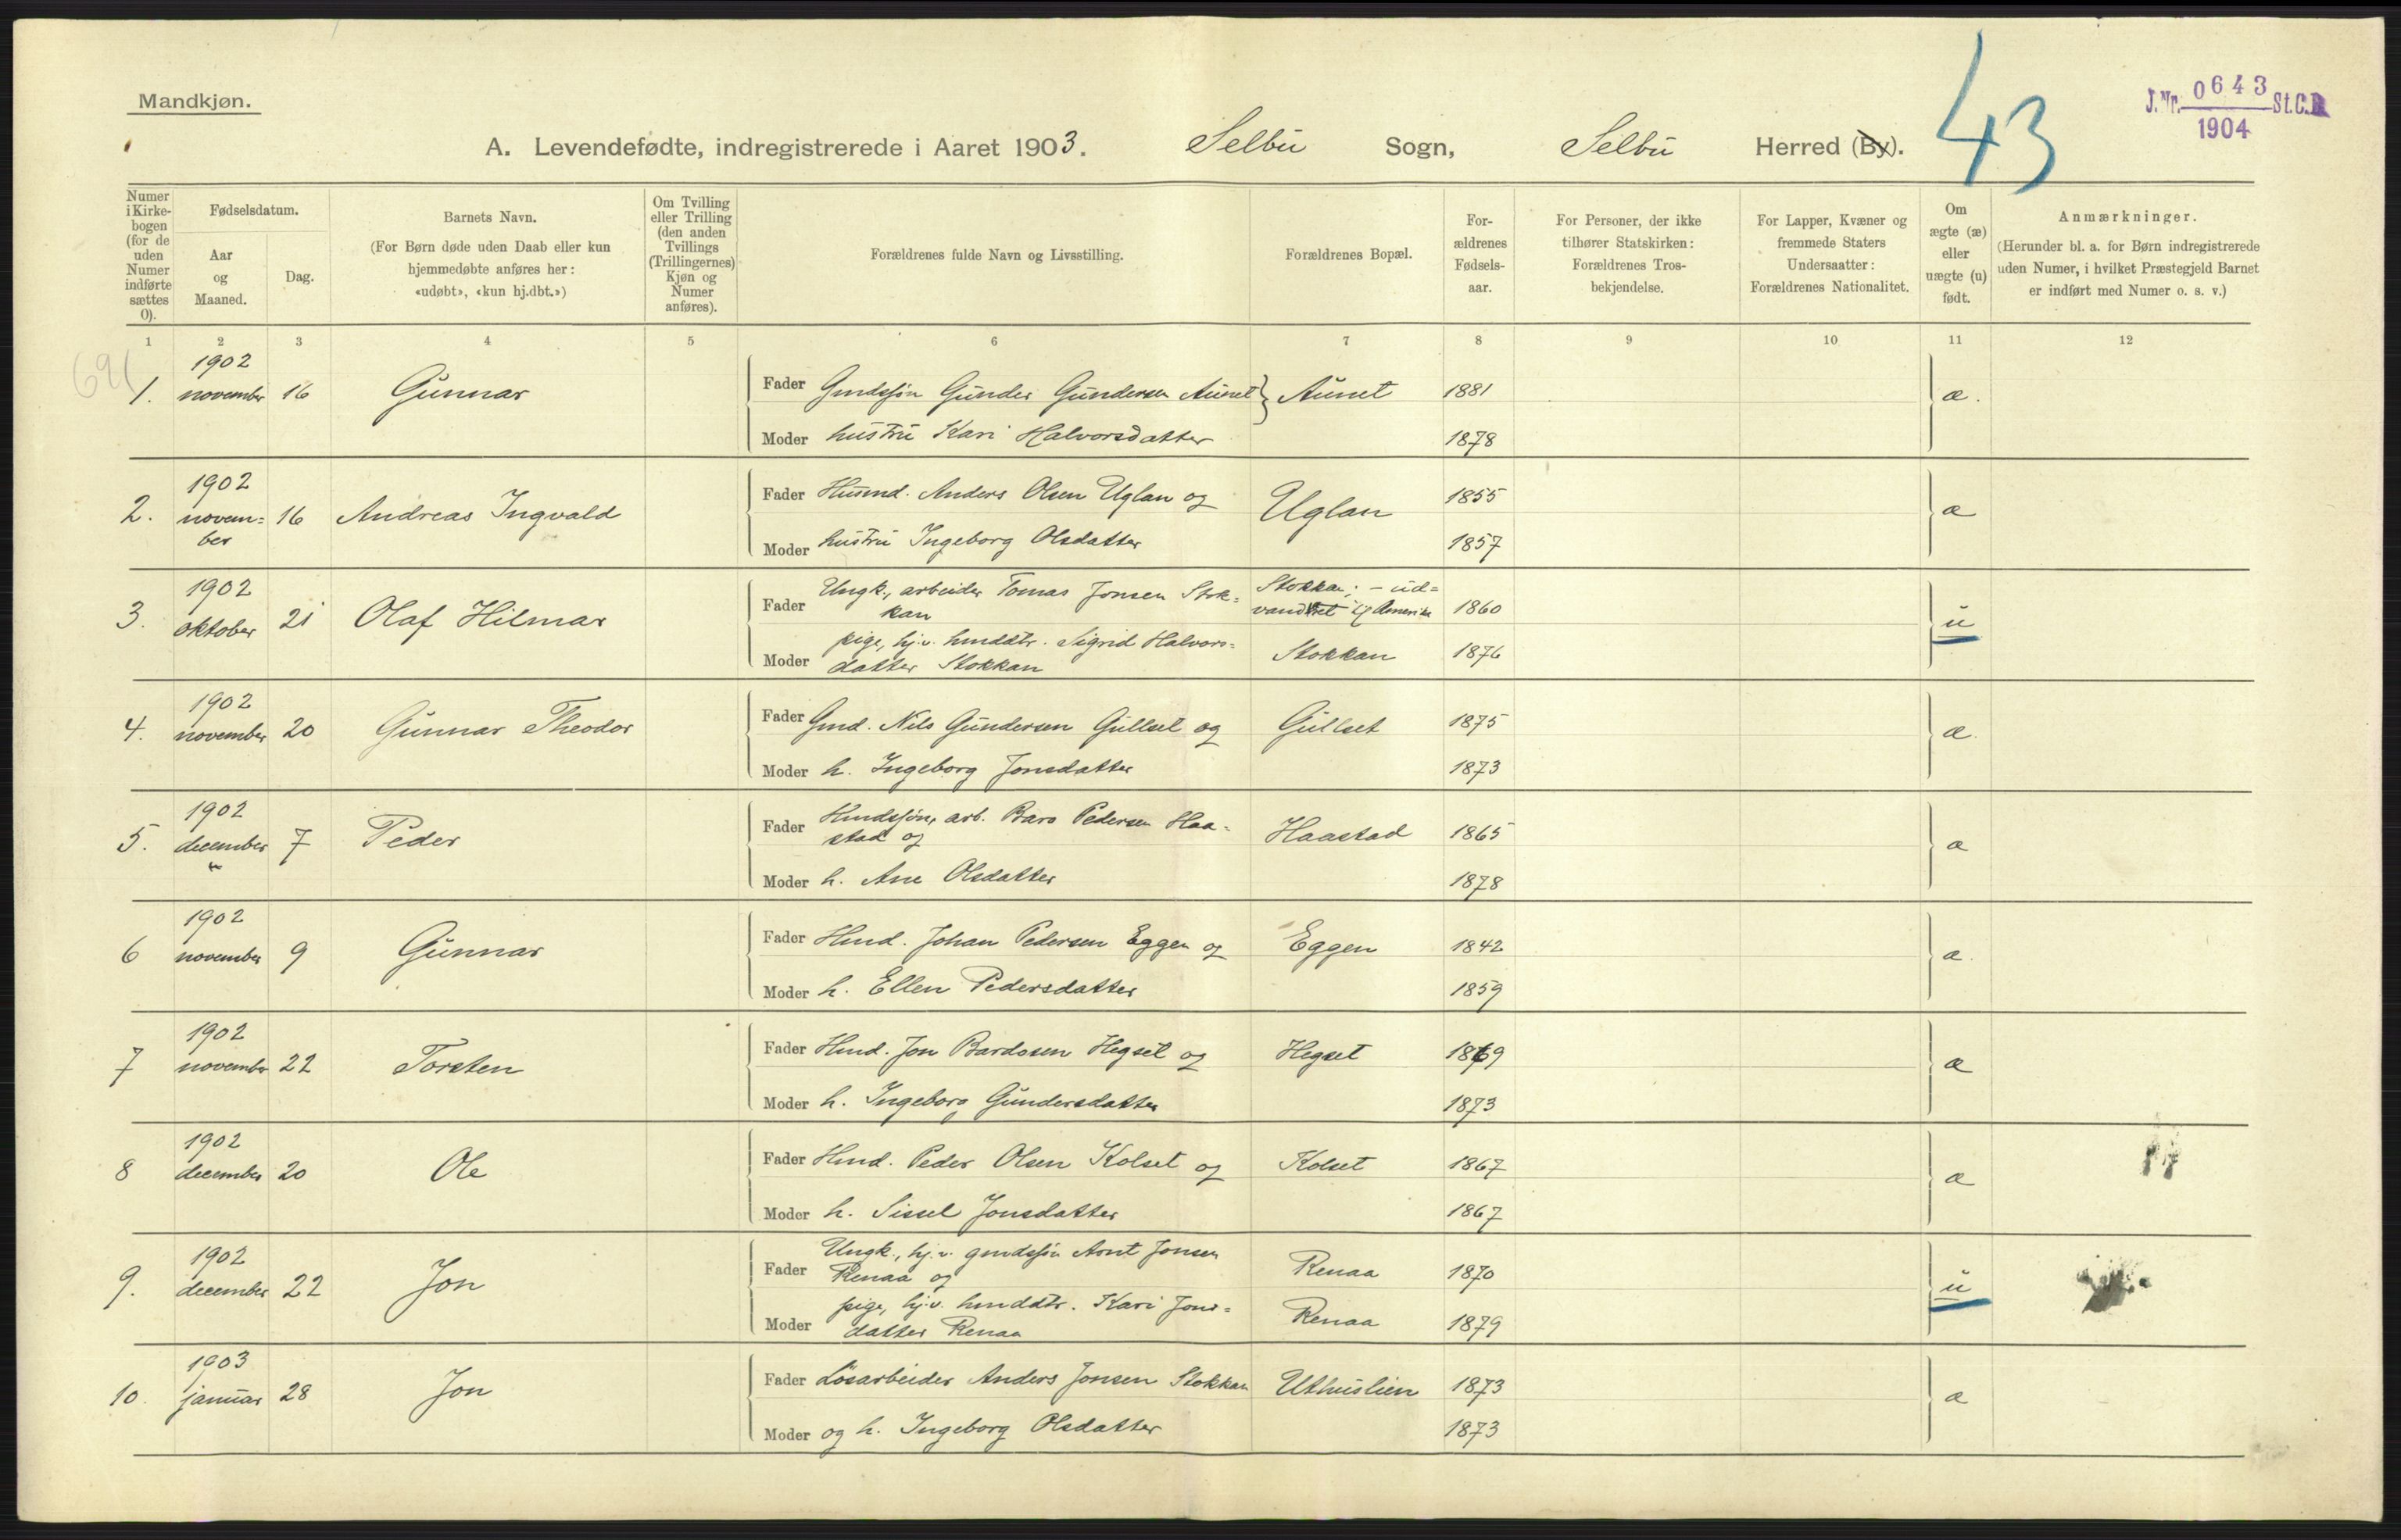 Mandkjøn.
J.Nr. 0643 St.C.B
1904
43
A. Levendefødte, indregistrerede i Aaret 1903. Selbu Sogn, Selbu Herred (By).
Numer i Kirkebogen (for de uden Numer indførte sættes 0).
Fødselsdatum.
Aar og Maaned.
Dag.
Barnets Navn.
(For Børn døde uden Daab eller kun hjemmedøbte anføres her: «udøbt», «kun hj.dbt.»)
Om Tvilling eller Trilling (den anden Tvillings (Trillingernes) Kjøn og Numer anføres).
Forældrenes fulde Navn og Livsstilling.
Forældrenes Bopæl.
Forældrenes Fødselsaar.
For Personer, der ikke tilhører Statskirken: Forældrenes Trosbekjendelse.
For Lapper, Kvæner og fremmede Staters Undersaatter: Forældrenes Nationalitet.
Om ægte (æ) eller uægte (u) født.
Anmærkninger.
(Herunder bl. a. for Børn indregistrerede uden Numer, i hvilket Præstegjeld Barnet er indført med Numer o. s. v.)
1 2 3 4 5 6 7 8 9 10 11 12
691
1902
1. november 16 Gunnar Fader Gmdssøn Gunder Gundersen Aunet } Aunet 1881 æ.
Moder hustru Kari Halvorsdatter 1878
1902
2. novem=
ber 16 Andreas Ingvald Fader Husmd. Anders Olsen Uglan og Uglan 1855 æ
Moder hustru Ingeborg Olsdatter 1857
1902
3. oktober 21 Olaf Hilmar Fader Ungk., arbeider Tomas Jonsen Stok=
kan Stokkan; - ud=
vandret til Amerika 1860 u
Moder pige, hj.v. hmddtr. Sigrid Halvors=
datter Stokkan Stokkan 1876
1902
4. november 20 Gunnar Theodor Fader Gmd. Nils Gundersen Gullset og Gullset 1875 æ.
Moder h. Ingeborg Jonsdatter 1873
1902
5. december 7 Peder Fader Hmdssøn, arb. Baro Pedersen Haa=
stad og Haastad 1865 æ
Moder h. Ane Olsdatter 1878
1902
6 november 9 Gunnar Fader Hmd. Johan Pedersen Eggen og Eggen 1842 æ.
Moder h. Ellen Pedersdatter 1859
1902
7 november 22 Torsten Fader Hmd. Jon Bardosen Hegset og Hegset 1869 æ
Moder h. Ingeborg Gundersdatter 1873
1902
8 december 20 Ole Fader Hmd. Peder Olsen Kolset og Kolset 1867 æ
Moder h. Sissel Jonsdatter 1867
1902
9. december 22 Jon Fader Ungk., hj.v. gmdssøn Arnt Jonsen
Renaa og Renaa 1870 u
Moder pige, hj.v. hmddtr. Kari Jons=
datter Renaa Renaa 1879
1903
10. januar 28 Jon Fader Løsarbeider Anders Jonsen Stokkan Uthuslien 1873 æ
Moder og h. Ingeborg Olsdatter 1873